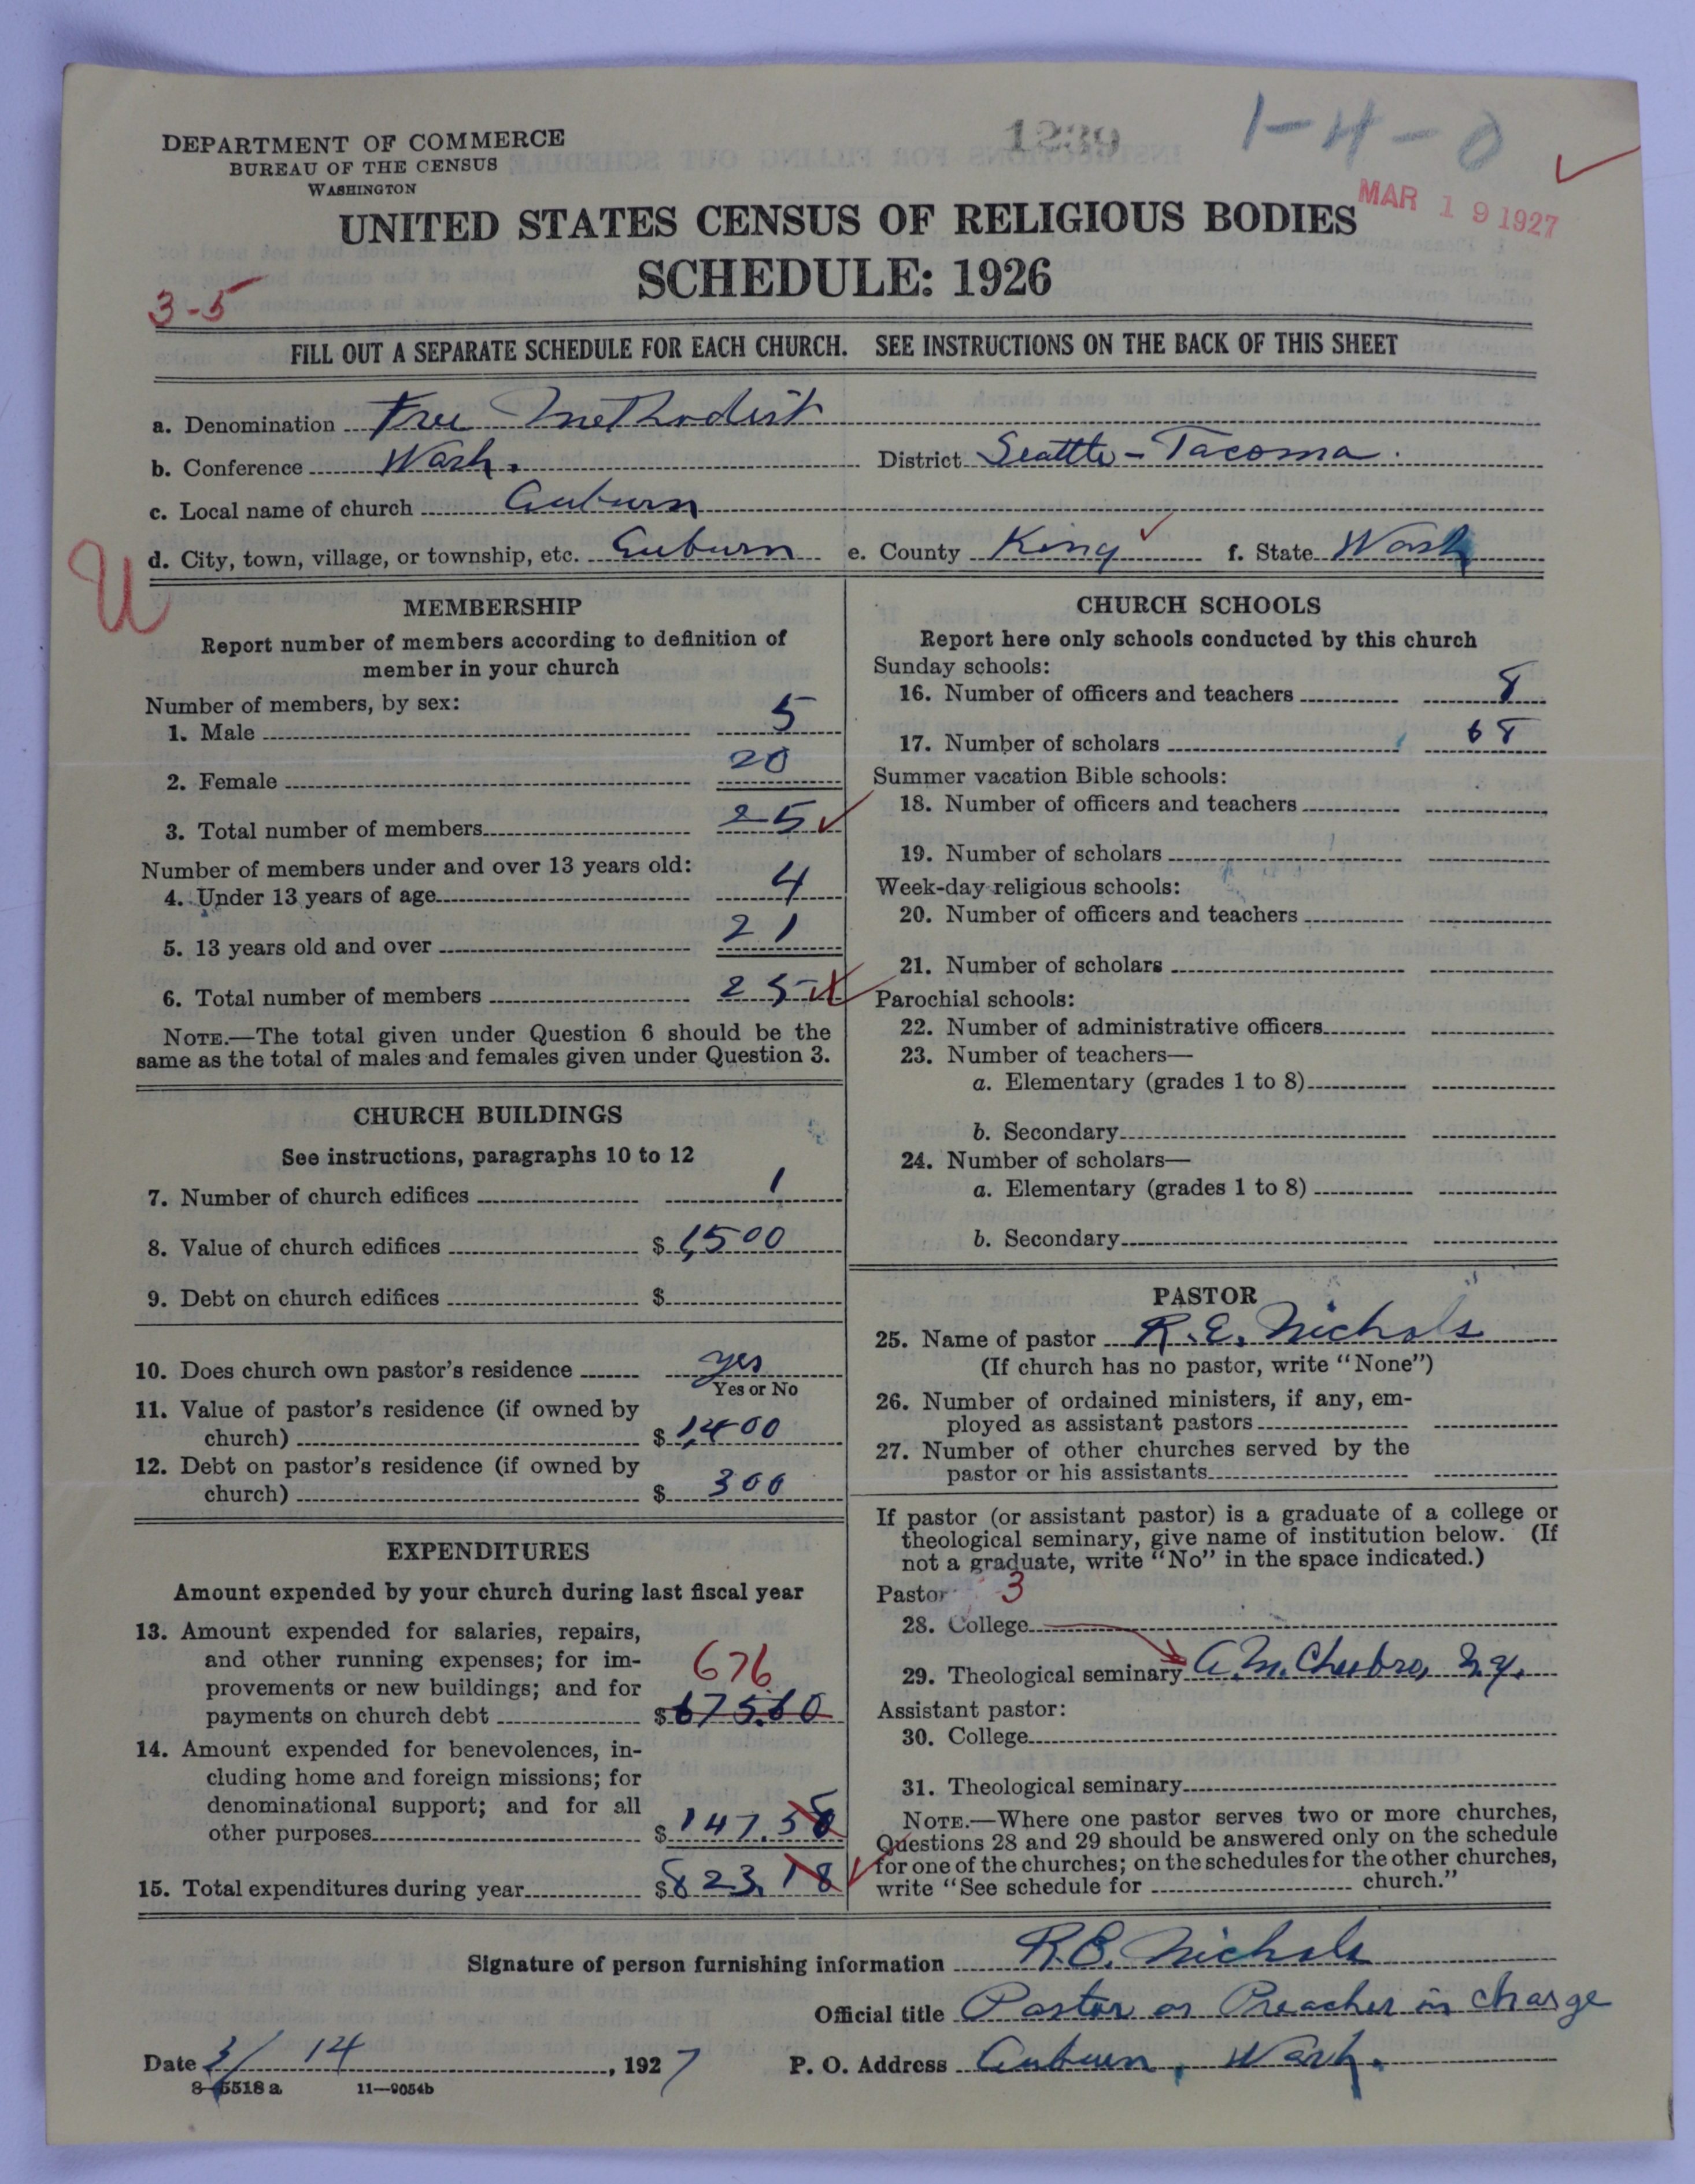 1239
1-4-0
DEPARTMENT OF COMMERCE
BUREAU OF THE CENSUS
WASHINGTON
MAR 19 1927
UNITED STATES CENSUS OF RELIGIOUS BODIES
SCHEDULE: 1926
3-5
FILL OUT A SEPARATE SCHEDULE FOR EACH CHURCH. SEE INSTRUCTIONS ON THE BACK OF THIS SHEET
a. Denomination Free Methodist
b. Conference Wash. District Seattle-Tacoma.
c. Local name of church Auburn
d. City, town, village, or township, etc. Auburn e. County King f. State Wash
U
MEMBERSHIP
Report number of members according to definition of
member in your church
Number of members, by sex:
1. Male 5
2. Female 20
3. Total number of members 25
Number of members under and over 13 years old:
4. Under 13 years of age 4
5. 13 years old and over 21
6. Total number of members 25
NOTE.—The total given under Question 6 should be the
same as the total of males and females given under Question 3.
CHURCH BUILDINGS
See instructions, paragraphs 10 to 12
7. Number of church edifices 1
8. Value of church edifices $1,500
9. Debt on church edifices $
10. Does church own pastor's residence yes
Yes or No
11. Value of pastor's residence (if owned by
church) $1,400
12. Debt on pastor's residence (if owned by
church) $300
EXPENDITURES
Amount expended by your church during last fiscal year
13. Amount expended for salaries, repairs,
and other running expenses; for im-
provements or new buildings; and for
676
payments on church debt $675.60
14. Amount expended for benevolences, in-
cluding home and foreign missions; for
denominational support; and for all
other purposes $147.58
15. Total expenditures during year $823.18
CHURCH SCHOOLS
Report here only schools conducted by this church
Sunday schools:
16. Number of officers and teachers 8
17. Number of scholars 68
Summer vacation Bible schools:
18. Number of officers and teachers
19. Number of scholars
Week-day religious schools:
20. Number of officers and teachers
21. Number of scholars
Parochial schools:
22. Number of administrative officers
23. Number of teachers—
a. Elementary (grades 1 to 8)
b. Secondary
24. Number of scholars—
a. Elementary (grades 1 to 8)
b. Secondary
PASTOR
25. Name of pastor R. E. Nichols
(If church has no pastor, write "None")
26. Number of ordained ministers, if any, em-
ployed as assistant pastors
27. Number of other churches served by the
pastor or his assistants
If pastor (or assistant pastor) is a graduate of a college or
theological seminary, give name of institution below. (If
not a graduate, write "No" in the space indicated.)
Pastor 3
28. College
29. Theological seminary A.M. Chesbro, N.Y.
Assistant pastor:
30. College
31. Theological seminary
NOTE.—Where one pastor serves two or more churches,
Questions 28 and 29 should be answered only on the schedule
for one of the churches; on the schedules for the other churches,
write "See schedule for church."
Signature of person furnishing information R.E. Nichols
Official title Pastor or Preacher in charge
Date 3/14, 1927 P. O. Address Auburn, Wash.
8-5518 a 11—9054b